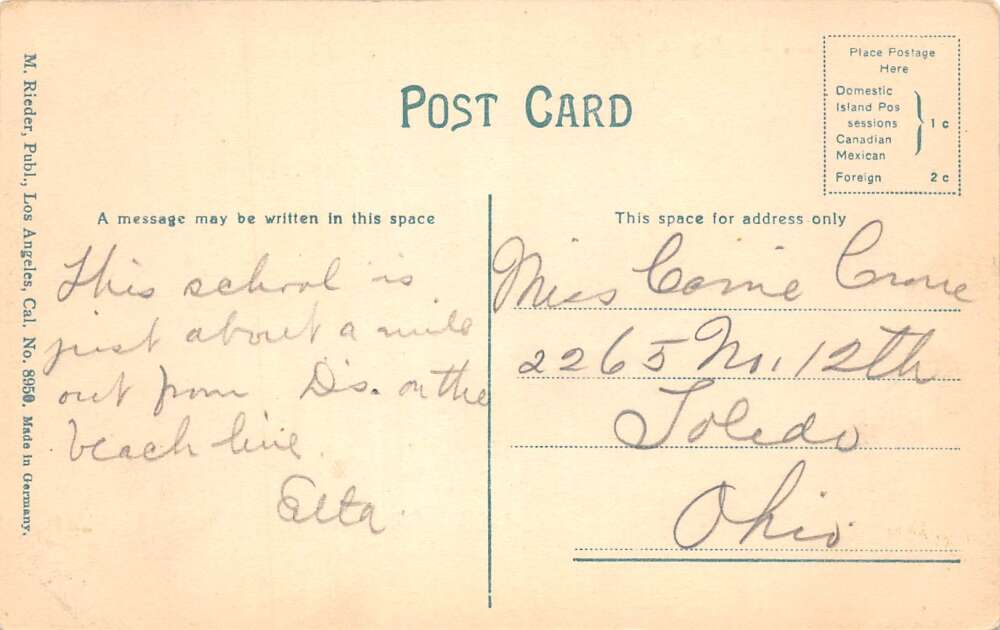 M. Rieder, Publ., Los Angeles, Cal. No. 8950. Made in Germany.
POST CARD
Place Postage
Here
Domestic
Island Pos
sessions
Canadian
Mexican
1 c
Foreign 2 c
A message may be written in this space
This school is
just about a mile
out from D's. on the
beach line
Elta
This space for address only
Miss Carrie Crane
2265 No. 12th
Toledo
Ohio